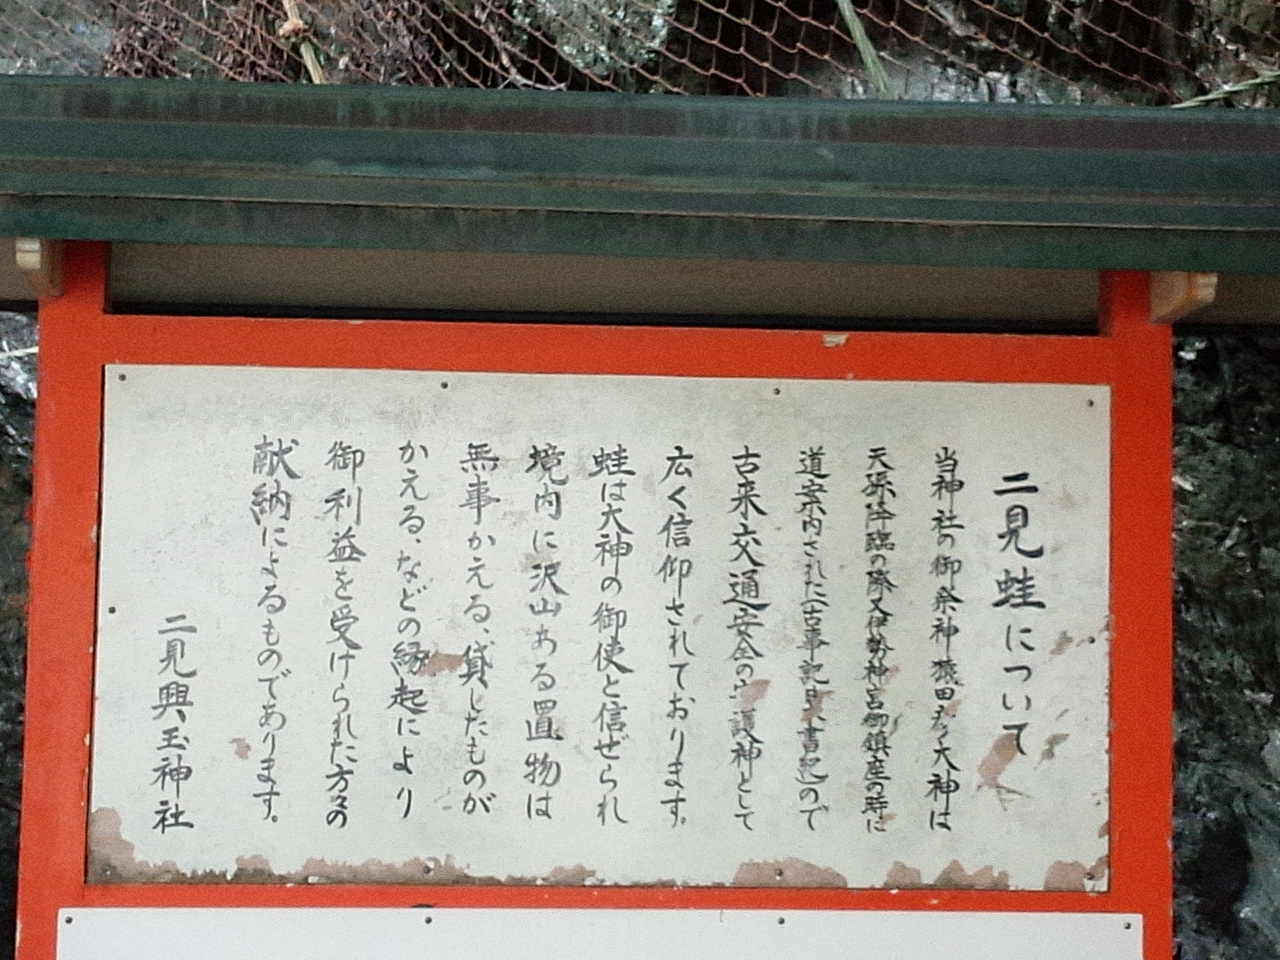 二見蛙について
当神社の御祭神猿田彦大神は
天孫降臨の際又伊勢神宮御鎮座の時に
道案内された(古事記日本書紀)ので
古来交通安全の守護神として
広く信仰されております。
蛙は大神の御使と信ぜられ
境内に沢山ある置物は
無事かえる、貸したものが
かえる、などの縁起により
御利益を受けられた方々の
献納によるものであります。
二見興玉神社